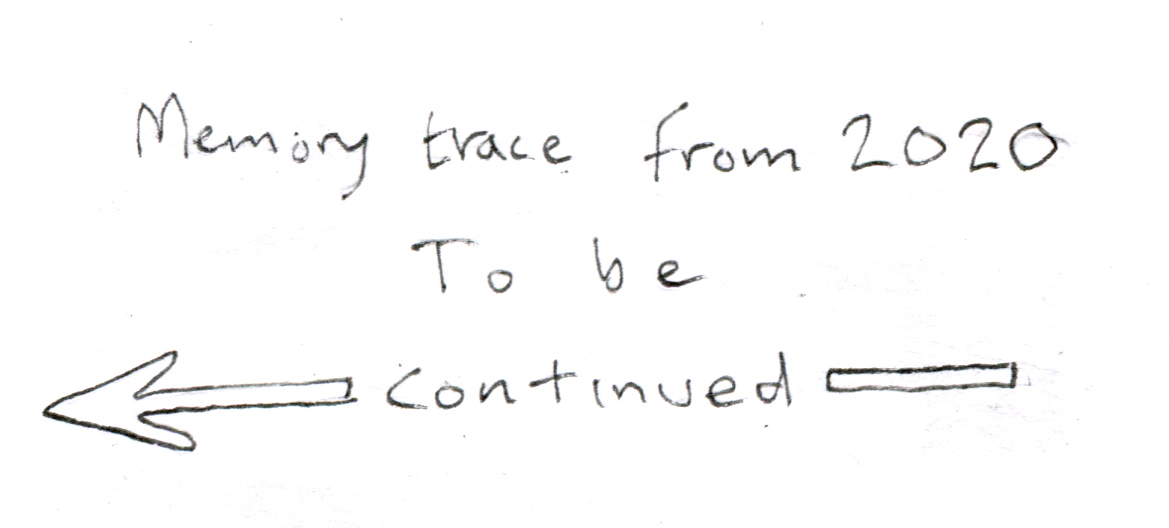 Memory trace from 2020
To be
continued